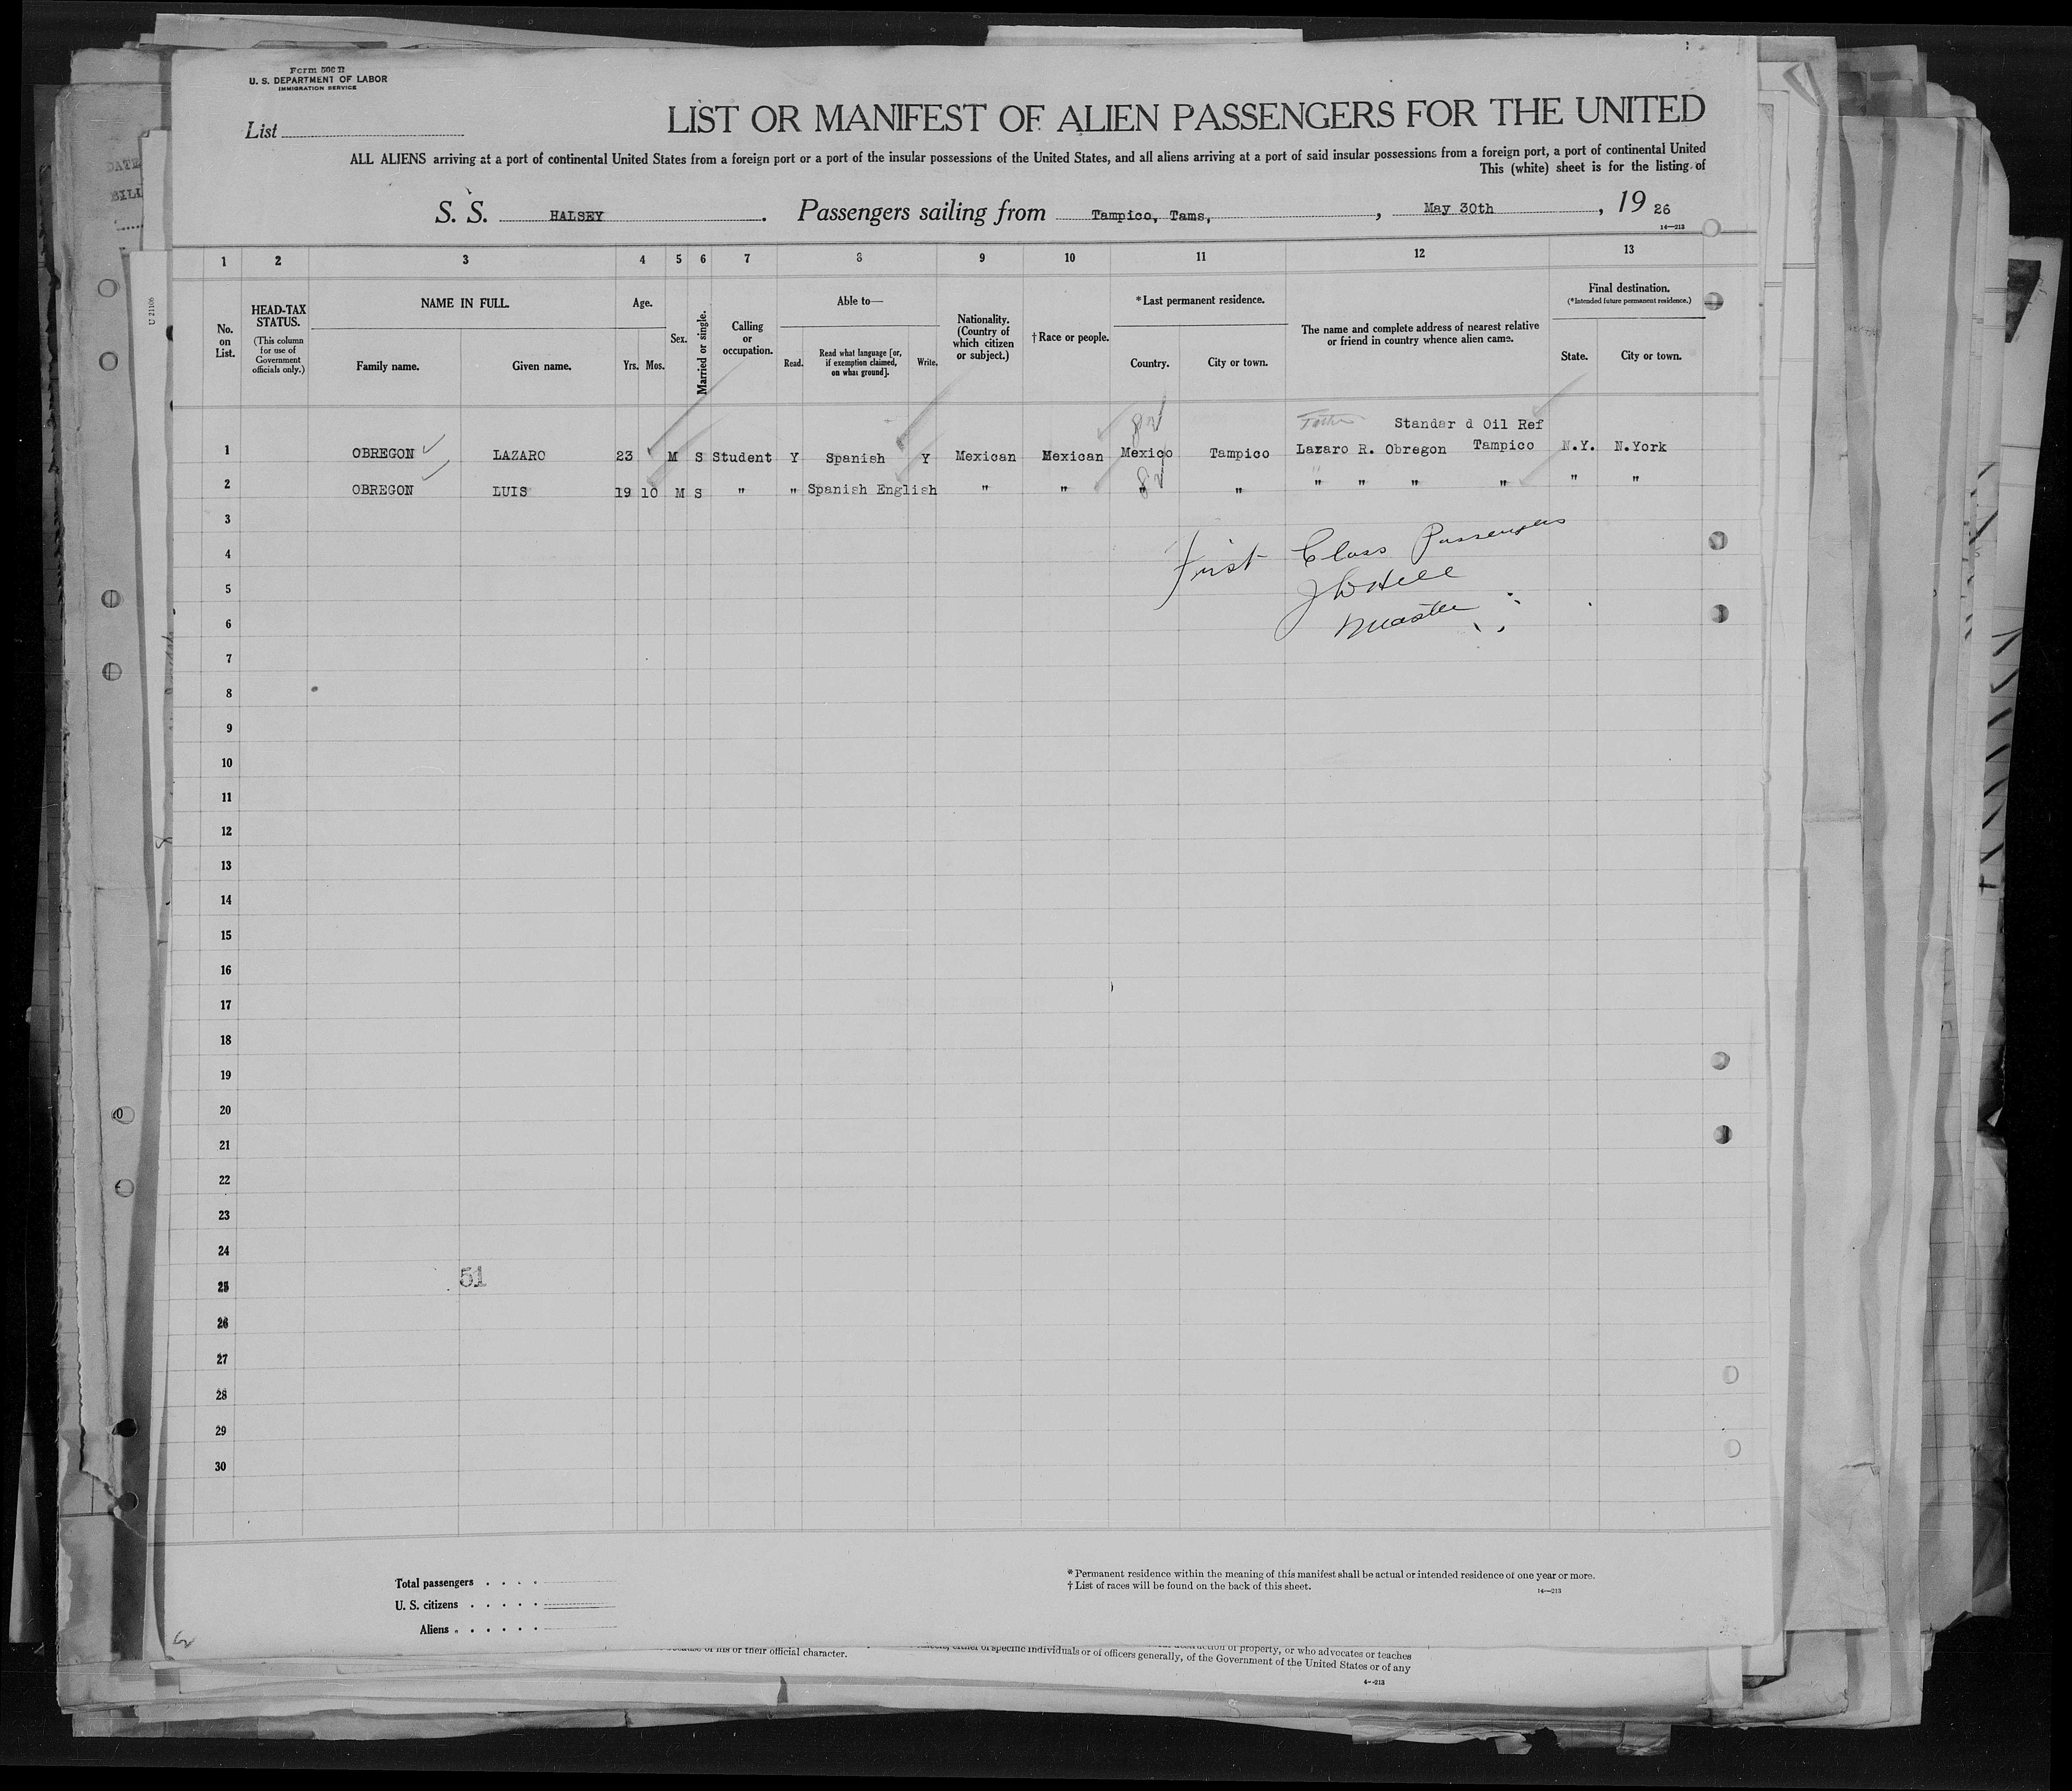 Form 500 B
U. S. DEPARTMENT OF LABOR
IMMIGRATION SERVICE
List
LIST OR MANIFEST OF ALIEN PASSENGERS FOR THE UNITED
ALL ALIENS arriving at a port of continental United States from a foreign port or a port of the insular possessions of the United States, and all aliens arriving at a port of said insular possessions from a foreign port, a port of continental United
This (white) sheet is for the listing of
S. S. HALSEY. Passengers sailing from Tampico, Tams, , May 30th , 19 26
14—213
1 2 3 4 5 6 7 8 9 10 11 12 13
No. on List.
HEAD-TAX STATUS.
(This column for use of Government officials only.)
NAME IN FULL.
Family name. Given name.
Age.
Yrs. Mos.
Sex.
Married or single.
Calling or occupation.
Able to—
Read. Read what language [or, if exemption claimed, on what ground]. Write.
Nationality. (Country of which citizen or subject.)
† Race or people.
* Last permanent residence.
Country. City or town.
The name and complete address of nearest relative or friend in country whence alien came.
Final destination.
(*Intended future permanent residence.)
State. City or town.
Father Standar d Oil Ref
1 OBREGON LAZARO 23 M S Student Y Spanish Y Mexican Mexican Mexico Tampico Lazaro R. Obregon Tampico N.Y. N.York
2 OBREGON LUIS 19 10 M S " " Spanish English " " " " " " " " " "
3
First Class Passengers
4
J W Hill
5
Master
6
7
8
9
10
11
12
13
14
15
16
17
18
19
20
21
22
23
24
51
25
26
27
28
29
30
Total passengers
U. S. citizens
Aliens
* Permanent residence within the meaning of this manifest shall be actual or intended residence of one year or more.
† List of races will be found on the back of this sheet.
14—213
of his or their official character.
either of specific individuals or of officers generally, of the Government of the United States or of any
of property, or who advocates or teaches
4—213
U 21106
DATE